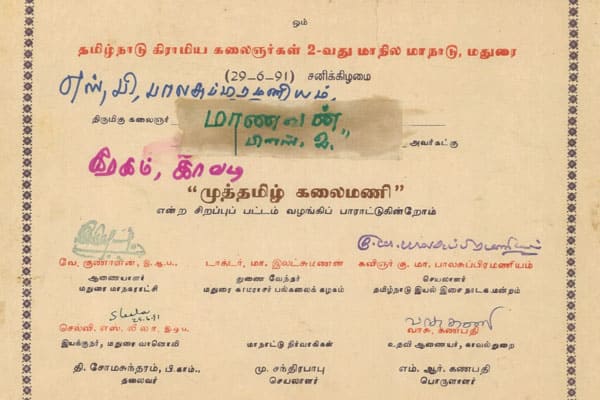 ஓம்
தமிழ்நாடு கிராமிய கலைஞர்கள் 2-வது மாநில மாநாடு, மதுரை
(29-6-91) சனிக்கிழமை
எஸ்,பி,பாலசுப்ரமணியம்,
திருமிகு கலைஞர் மாணவன் அவர்கட்கு
கரகம், காவடி
"முத்தமிழ் கலைமணி"
என்ற சிறப்புப் பட்டம் வழங்கிப் பாராட்டுகின்றோம்
வே. குணாளன், இ.ஆ.ப., டாக்டர், மா. இலட்சுமணன் கவிஞர் கு. மா. பாலசுப்பிரமணியம்
ஆணையாளர் துணை வேந்தர் செயலாளர்
மதுரை மாநகராட்சி மதுரை காமராசர் பல்கலைக் கழகம் தமிழ்நாடு இயல் இசை நாடக மன்றம்
செல்வி. எஸ். லீலா, வாசு, கணபதி
இயக்குநர், மதுரை வானொலி மாநாட்டு நிர்வாகிகள் உதவி ஆணையர், காவல்துறை
தி. சோமசுந்தரம், பி.காம்., மு. சந்திரபாபு எம். ஆர். கணபதி
தலைவர் செயலாளர் பொருளாளர்